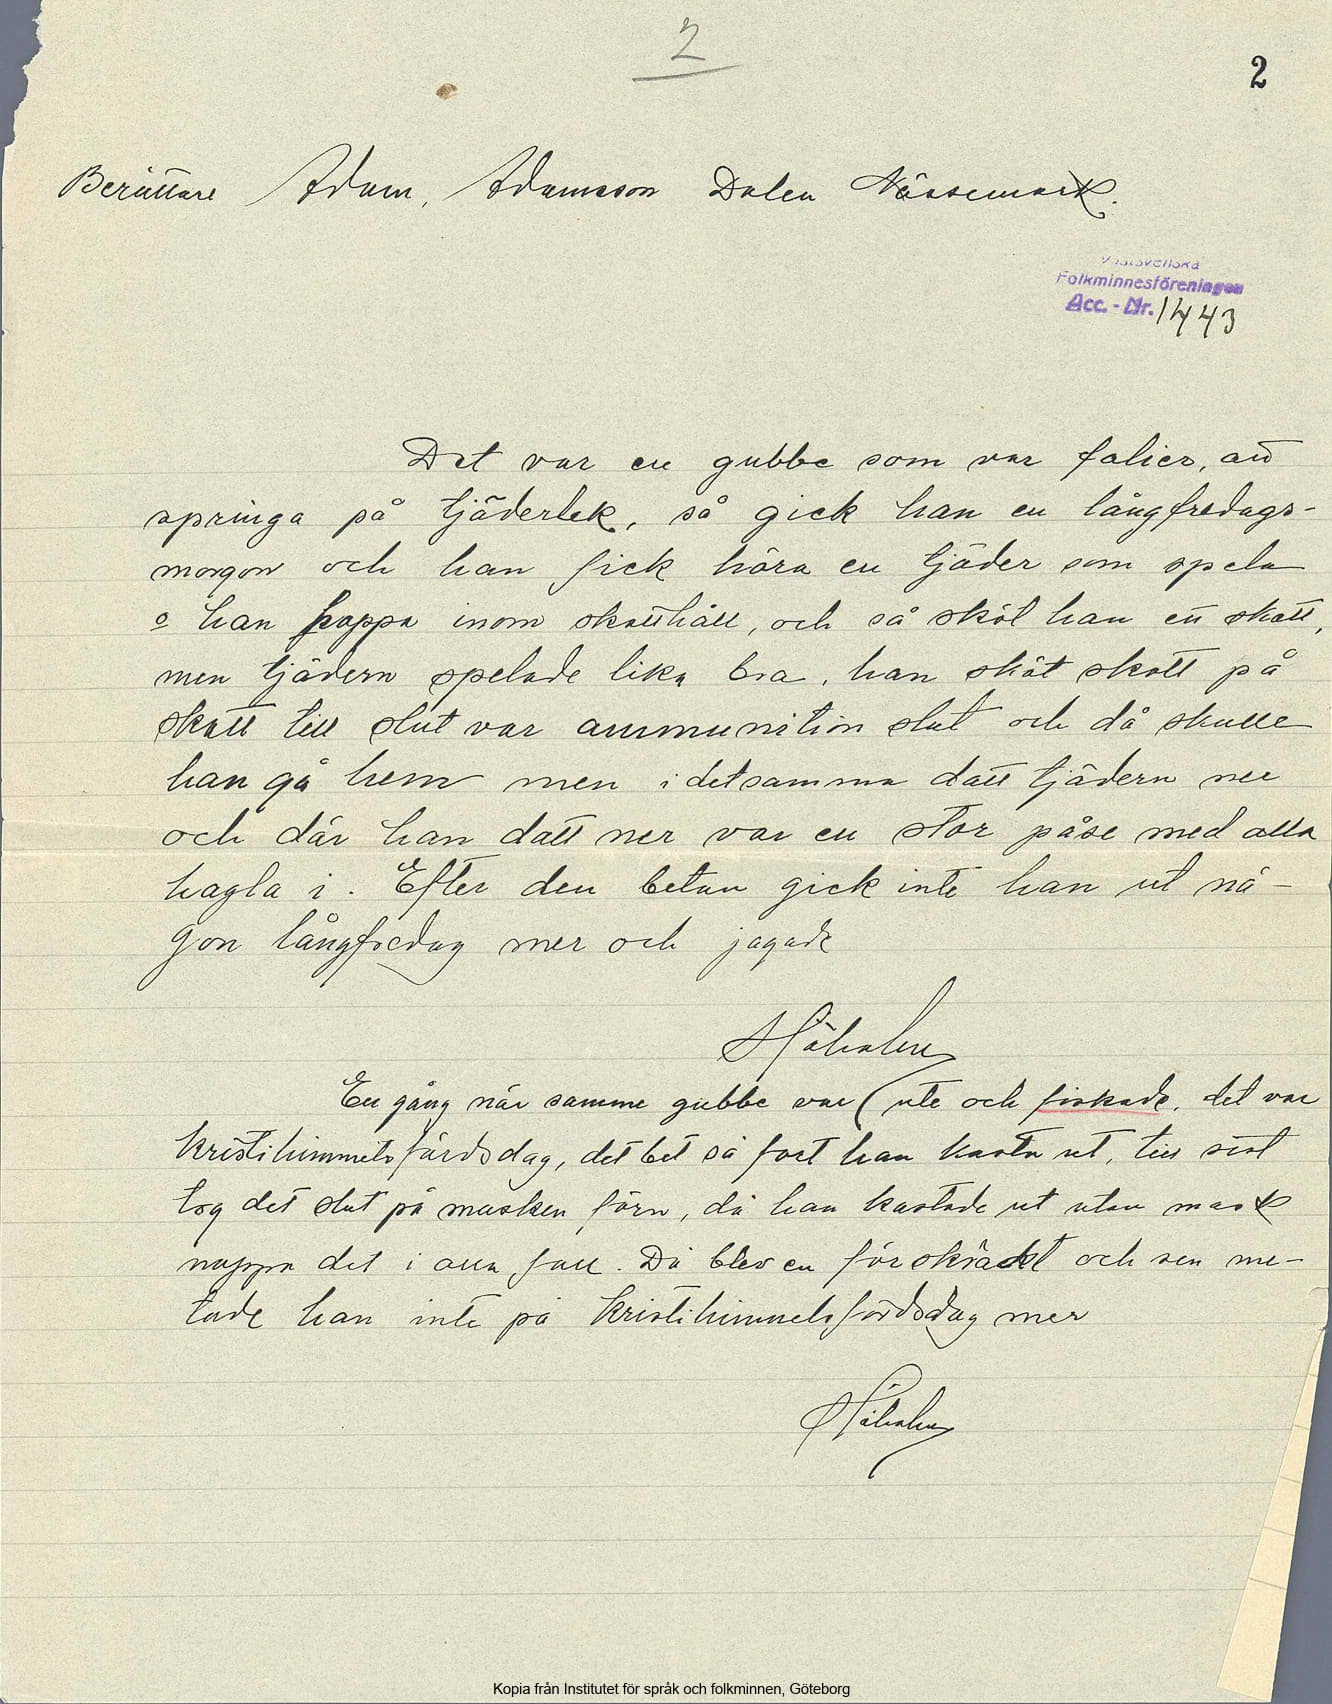 2
2
Berättare Adam, Adamsson Dalen Nössemark.
Västsvenska
Folkminnesföreningen
Acc. - Nr. 1443
Det var en gubbe som var falies, att
springa på tjäderlek, så gick han en långfredags-
morgon och han fick höra en tjäder som spela
o han hoppa inom skotthåll, och så sköt han ett skott,
men tjädern spelade lika bra, han sköt skott på
skott till slut var ammunition slut och då skulle
han gå hem men i detsamma datt tjädern ner
och där han datt ner var en stor påse med alla
hagla i. Efter den betan gick inte han ut nå-
gon långfredag mer och jagade
En gång när samme gubbe var ute och fiskade, det var
kristihimmelsfärdsdag, det bet så fort han kasta ut, till sist
tog det slut på masken förn, då han kastade ut utan mask
nappa det i alla fall. Då blev en förskräckt och sen me-
tade han inte på kristihimmelsfärdsdag mer
Kopia från Institutet för språk och folkminnen, Göteborg